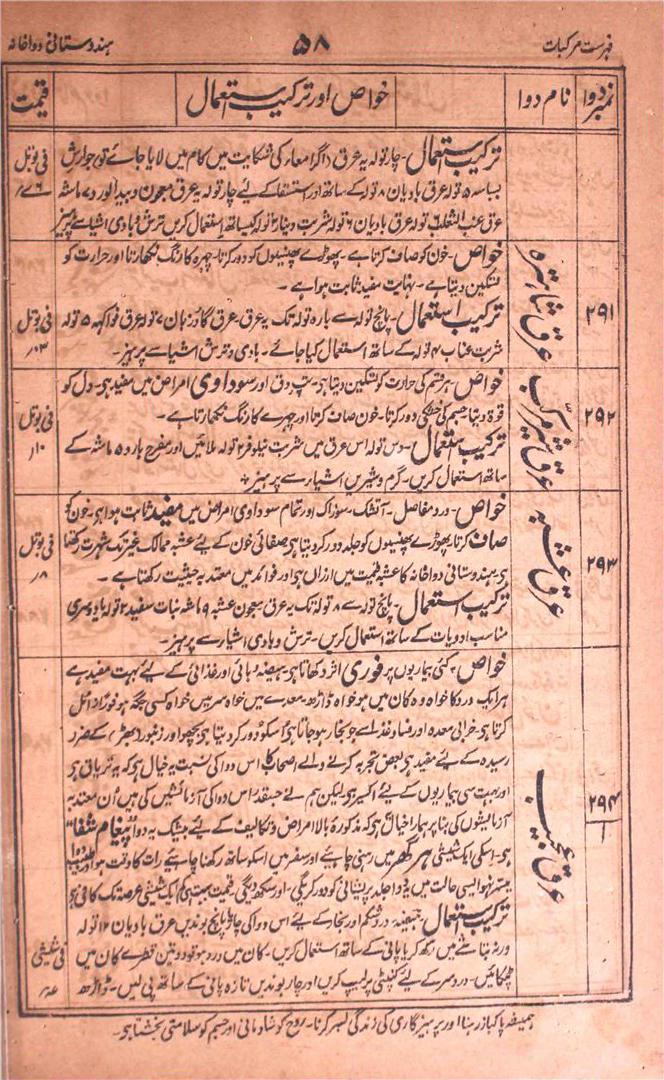 فہرست مرکبات ۵۸ ہندوستانی دواخانہ
نمبر دوا نام دوا خواص اور ترکیب استعمال قیمت
ترکیب استعمال۔ چار تولہ یہ عرق اگر امعاء کی شکایت میں کام میں لایا جائے تو جوارش فی بوتل
بسباسہ ۵ تولہ عرق بادیان ۸ تولہ کے ساتھ اور استسقا کے لئے چار تولہ یہ عرق معجون دبیدالورد ۷ ماشہ
عرق عنب الثعلب ۶ تولہ عرق بادیان ۶ تولہ شربت دینار ۲ تولہ کیساتھ استعمال کریں ترش و بادی اشیا سے پرہیز
۲۹۱ عرق شاہترہ خواص۔ خون کو صاف کرتا ہے۔ پھوڑے پھنسیوں کو دور کرتا۔ چہرہ کا رنگ نکھارتا اور حرارت کو
تسکین دیتا ہے۔ نہایت مفید ثابت ہوا ہے۔
ترکیب استعمال۔ پانچ تولہ سے بارہ تولہ تک یہ عرق۔ عرق گاؤزبان ۷ تولہ عرق فواکہہ ۵ تولہ فی بوتل
شربت عناب ۲ تولہ کے ساتھ استعمال کیا جائے۔ بادی و ترش اشیا سے پرہیز۔ ۳؍
۲۹۲ عرق شیر مرکب خواص۔ ہر قسم کی حرارت کو تسکین دیتا ہی۔ تپ دق اور سوداوی امراض میں مفید ہی۔ دل کو
قوۃ دیتا جسم کی خشکی دور کرتا۔ خون صاف کرتا اور چہرے کا رنگ نکھارتا ہے۔ فی بوتل
ترکیب استعمال۔ دس تولہ اس عرق میں شربت نیلوفر ۲ تولہ ملائیں اور مفرح بارد ۵ ماشہ کے ۱۰؍
ساتھ استعمال کریں۔ گرم و شیریں اشیاء سے پرہیز
۲۹۳ عرق عشبہ خواص۔ درد مفاصل۔ آتشک۔ سوزاک اور تمام سوداوی امراض میں مفید ثابت ہوا ہی۔ خون کو
صاف کرتا۔ پھوڑے پھنسیوں کو جلد دور کر دیتا ہی صفائی خون کے لئے عشبہ ممالک غیر تک شہرت رکھتا فی بوتل
ہی۔ ہندوستانی دواخانہ کا عشبہ قیمت میں ارزاں ہی اور فوائد میں معتد بہ حیثیت رکھتا ہے۔ ۸؍
ترکیب استعمال۔ پانچ تولہ سے ۸ تولہ تک یہ عرق معجون عشبہ ۹ ماشہ نبات سفید ۲ تولہ یا دوسری
مناسب ادویات کے ساتھ استعمال کریں۔ ترش و بادی اشیاء سے پرہیز۔
۲۹۴ عرق عجیب خواص۔ کئی بیماریوں پر فوری اثر دکھاتا ہی۔ ہیضہ وبائی اور غذائی کے لیے بہت مفید ہے
ہر ایک درد کا خواہ وہ کان میں ہو خواہ ڈاڑھ۔ معدے میں خواہ سر میں خواہ کسی جگہ ہو فوراً زائل
کرتا ہی۔ خرابی معدہ اور فساد غذا سے جو بخار ہو جاتا ہی اسکو دور کر دیتا ہی بچھو اور زنبور (بھڑ) کے ضرر
رسیدہ کے لیے مفید ہی بعض تجربہ کرنے والے اصحاب کا اس دوا کی نسبت یہ خیال ہی کہ یہ تریاق ہی
اور بہت سی بیماریوں کے لیے اکسیر ہی لیکن ہم نے جسقدر اس دوا کی آزمائشیں کی ہیں اُن معتد بہ
آزمایشوں کی بنا پر ہمارا خیال ہی کہ مذکورہ بالا امراض و تکالیف کے لیے بیشک یہ دوا "پیغام شفا"
ہی۔ اسکی ایک شیشی ہر گھر میں رہنی چاہیے اور سفر میں اسکو ساتھ رکھنا چاہیے رات کا وقت ہو اور طبیب و دوا
میسر نہو ایسی حالت میں یہ دوا جلد پریشانی کو دور کریگی۔ اور سکھ دیگی۔ قیمت بہت کم ایک شیشی عرصہ تک کافی ہی
ترکیب استعمال۔ ہیضہ۔ درد شکم اور بخار کے لیے اس دوا کی چار یا پانچ بوندیں عرق بادیان ۱۲ تولہ
ورنہ بتاشے میں رکھ کر یا پانی کے ساتھ استعمال کریں۔ کان میں درد ہو تو دو تین قطرے کان میں فی شیشی
ٹپکائیں۔ درد سر کے لیے کنپٹی پر لیپ کریں اور چار بوندیں تازہ پانی کے ساتھ پی لیں۔ ڈاڑھ
ہمیشہ پاکباز رہنا اور پرہیزگاری کی زندگی بسر کرنا۔ روح کو شادمانی اور جسم کو سلامتی بخشتا ہی۔